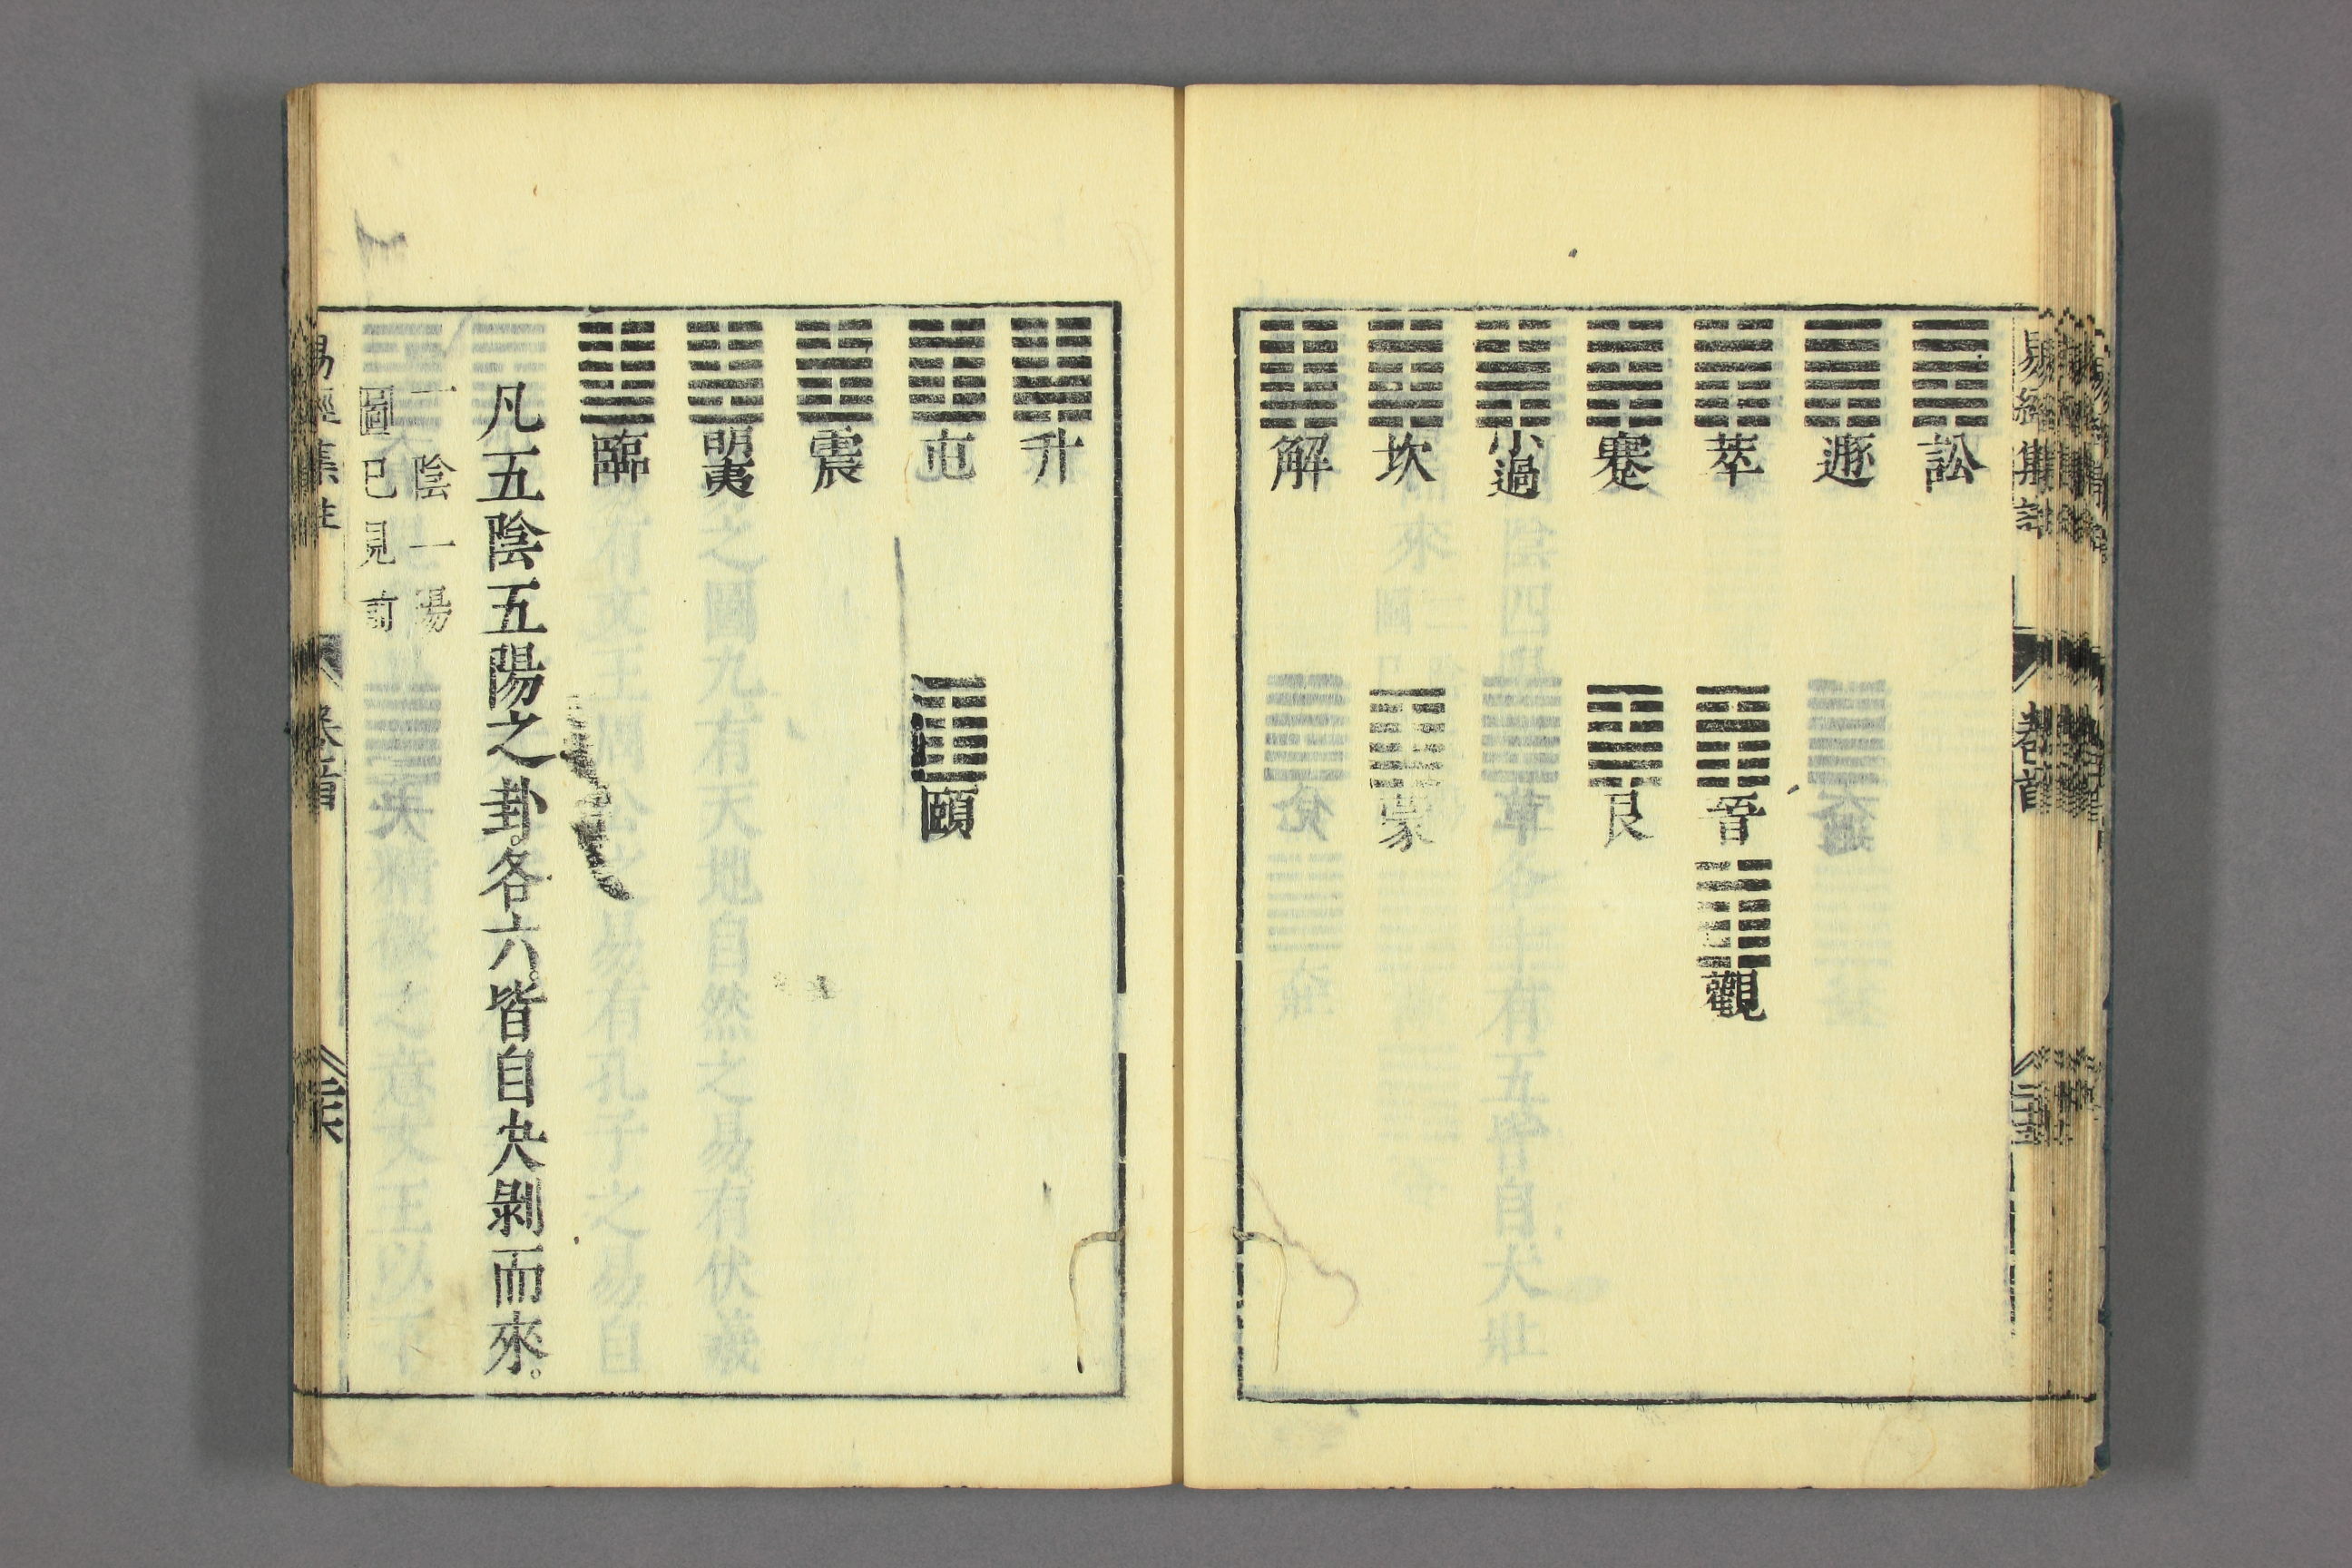 易經集註 卷首
訟
遯
萃 晉 觀
蹇 艮
小過
坎 蒙
解
升
屯 頤
震
明夷
臨
凡五陰五陽之卦。各六。皆自夬剝而來。
一陰一陽
圖已見前
易經集註 卷首